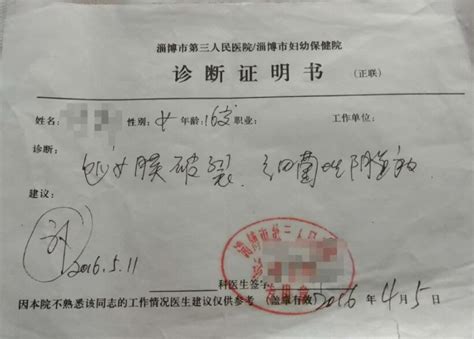 淄博市第三人民医院/淄博市妇幼保健院
诊断证明书 (正联)
姓名: 性别: 女 年龄: 16岁 职业: 工作单位:
诊断:
处女膜破裂 细菌性阴道
建议:
2016.5.11
淄博市第三人民
专用章
科医生签字
因本院不熟悉该同志的工作情况医生建议仅供参考 (盖章有效) 2016 年 4 月 5 日